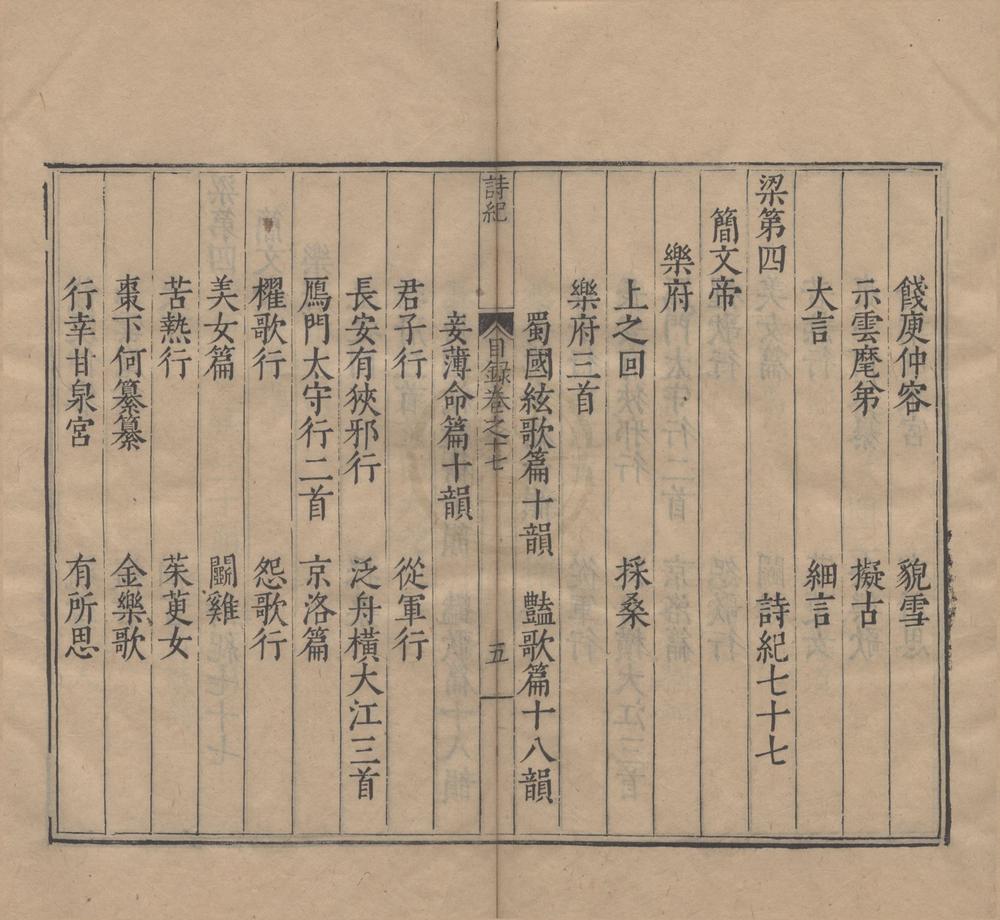 餞庾仲容　貌雪
示雲麾弟　擬古
大言　細言
梁第四　詩紀七十七
簡文帝
樂府
上之回　採桑
樂府三首
蜀國絃歌篇十韻　豔歌篇十八韻
詩紀　目録卷之十七　五
妾薄命篇十韻
君子行　從軍行
長安有狹邪行　泛舟橫大江三首
鴈門太守行二首　京洛篇
櫂歌行　怨歌行
美女篇　鬬雞
苦熱行　茱萸女
棗下何纂纂　金樂歌
行幸甘泉宮　有所思